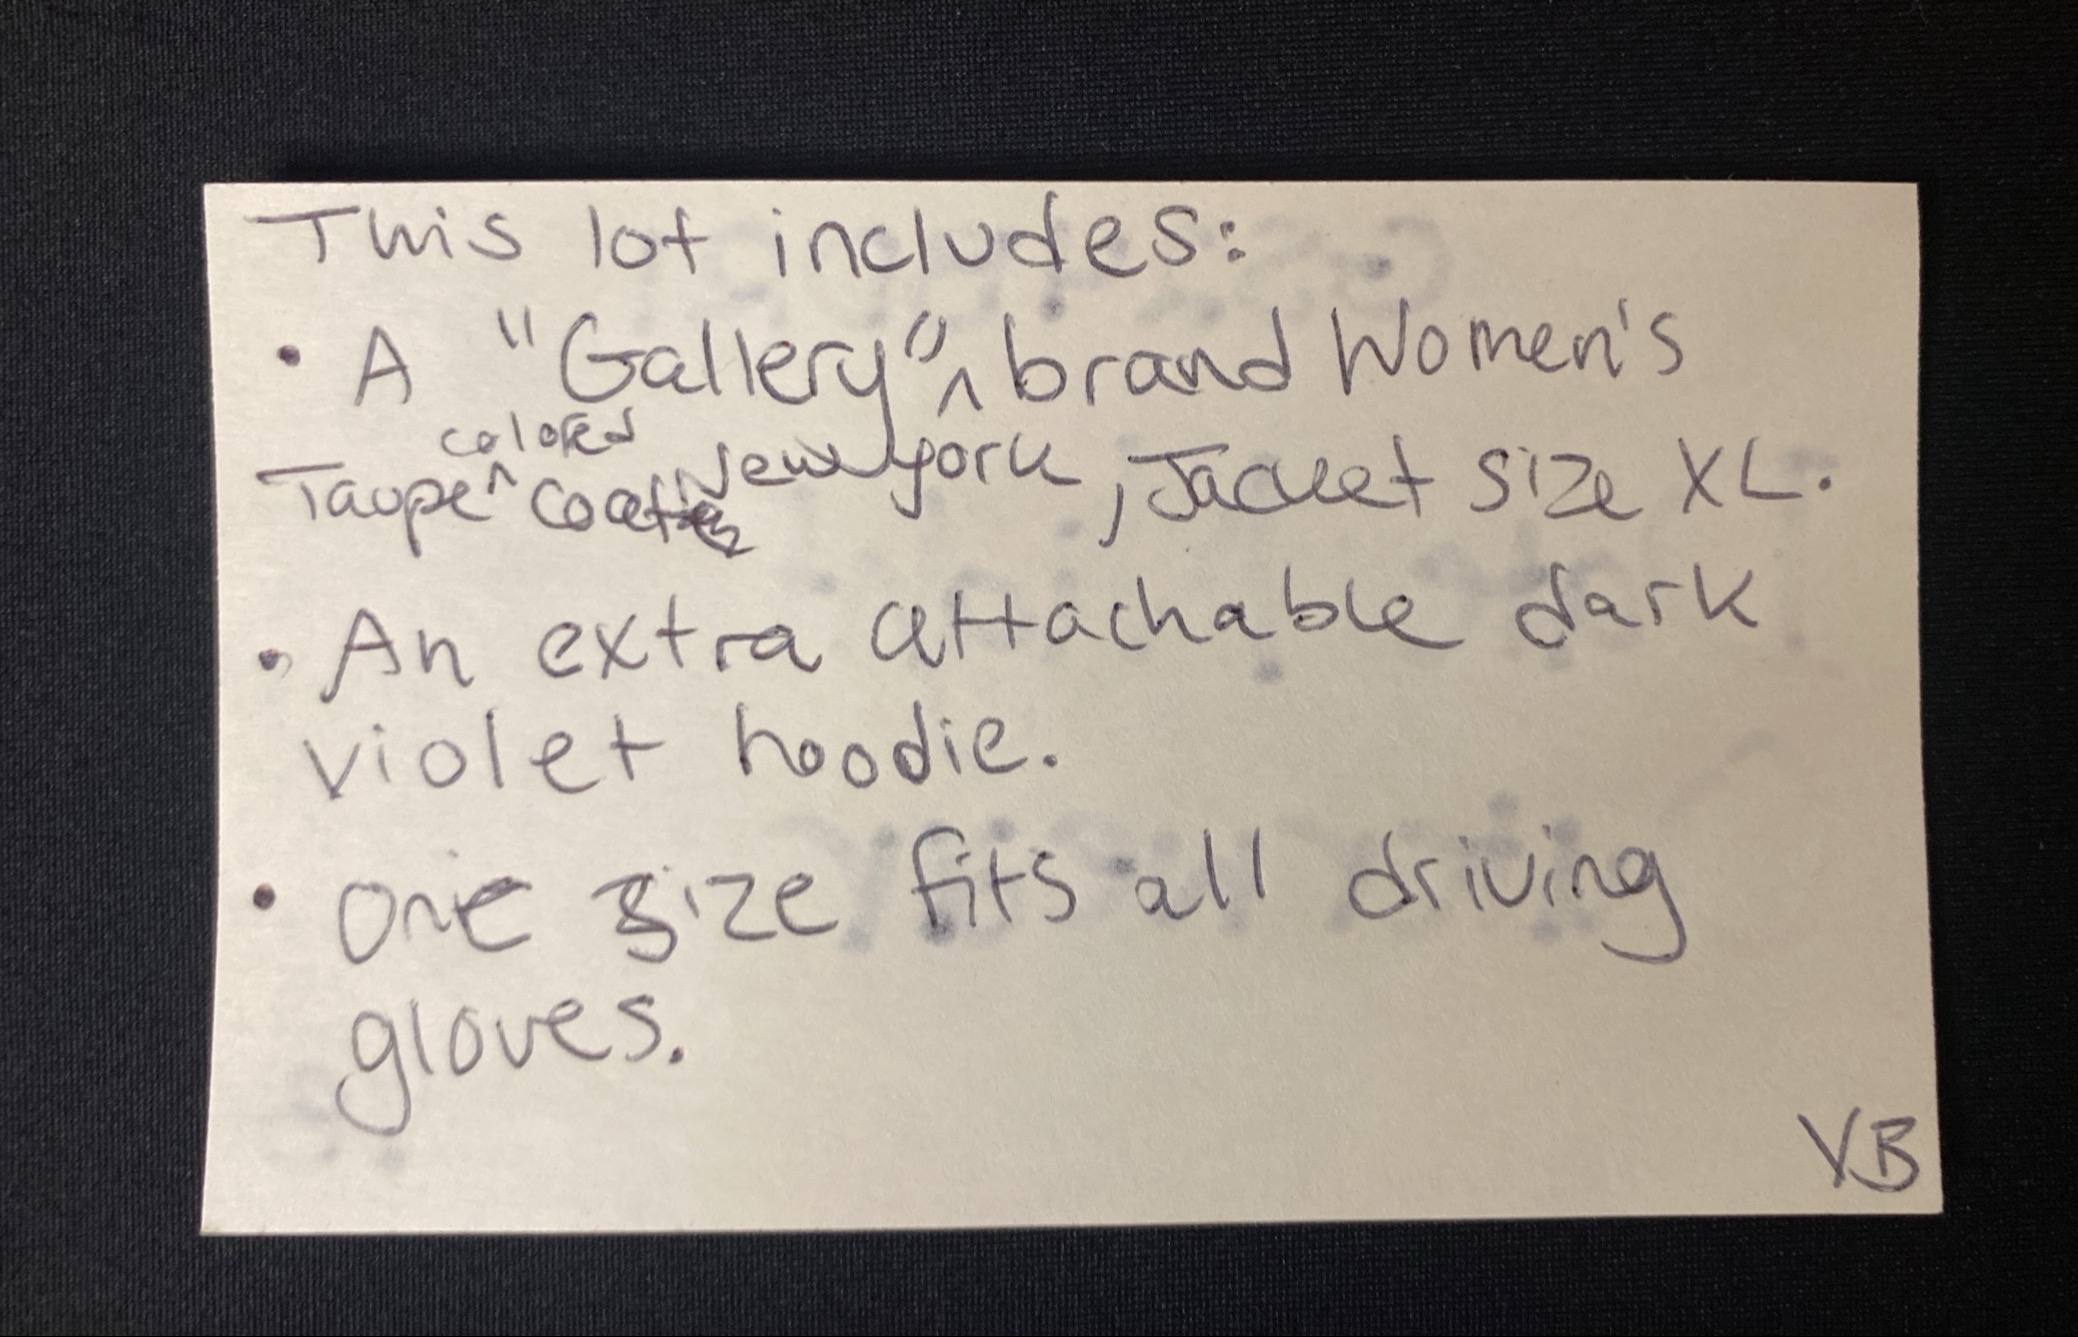 This lot includes:
• A "Gallery" ^ brand Women's
colored
Taupe ^ Coat New York, Jacket size XL.
• An extra attachable dark
violet hoodie.
• One size fits all driving
gloves.
VB